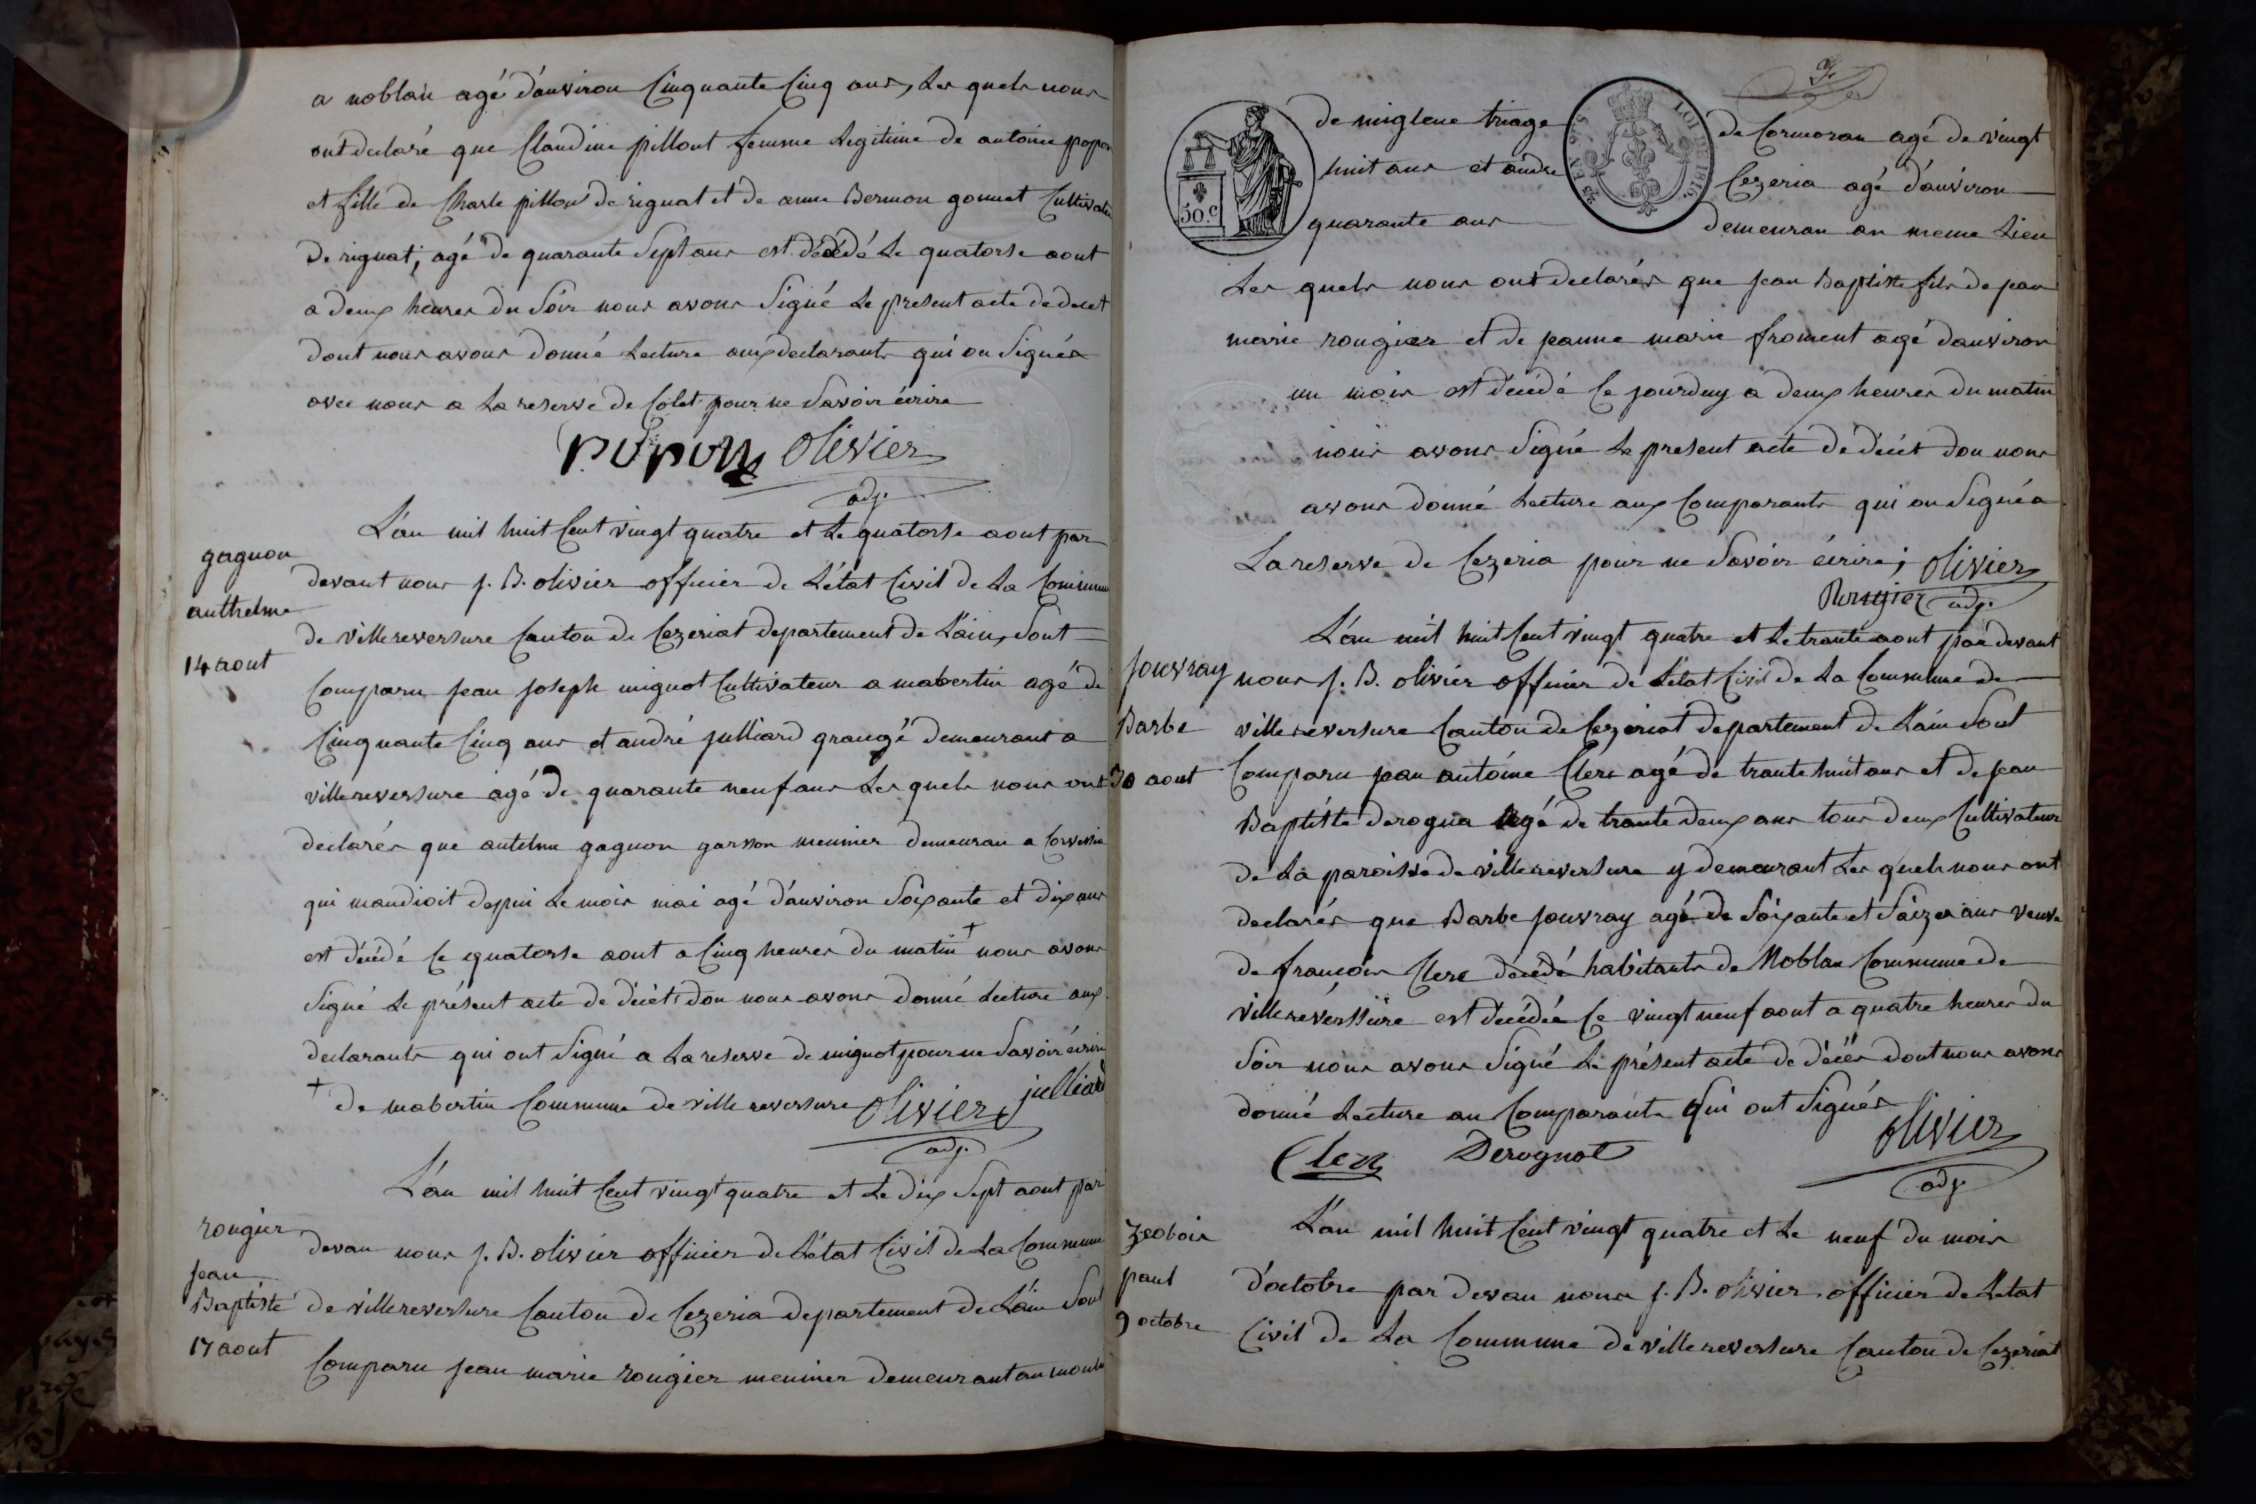 a noblan agé d'anviron Cinquante Cinq ans, Les quels nous
ont declaré que Claudine pillout femme Legitime de antoine popon
et fille de Charle pillou de rignat et de anne Bermon gonnet Cultivateur
De rignat, agé de quarante Sept ans est décédé Le quatorse aout
a deux heures du Soir nous avons Signé Le present acte de decet
dont nous avons donné Lecture aux declarants qui on Signés
avec nous a La reserve de Colet pour ne Savoir écrire
popon olivier
adj.
gagnon
anthelme
14 aout
L'an mil huit Cent vingt quatre et Le quatorse aout par
devant nous j. B. olivier officier de L'état Civil de La Commune
de villereversure Canton de Cezeriat departement de L'ain, Sont
Comparu jean joseph mignot Cultivateur a mabertin agé de
Cinquante Cinq ans et andré julliard grangé demeurant a
villereversure agé de quarante neuf ans Les quels nous ont
declarés que antelme gagnon garson meunier demeuran a
qui mandioit depui Le mois mai agé d'anviron Soixante et dix ans
est décédé Ce quatorse aout a Cinq heures du matin + nous avons
Signé Le présent acte de décét don nous avons donné Lecture aux
declarants qui ont Signé a La reserve de mignot pour ne Savoir écrire
+ de mabertin Commune de villereversure olivier julliard
adj.
rougier
jean
Baptiste
17 aout
L'an mil huit Cent vingt quatre et Le dix Sept aout par
devan nous j. B. olivier officier de L'état Civil de La Commune
de villereversure Canton de Cezeria departement de L'ain Sont
Comparu jean marie rougier meunier demeurant au moulin
de triage de Cormoran agé de vingt
huit ans et andré Cezeria agé d'anviron
quarante ans demeuran au meme Lieu
50 c
LOI DE 1816
Les quels nous ont declarés que jean Baptiste fils de jean
marie rougier et de jeanne marie froment agé d'anviron
un mois est décédé Ce jourduy a deux heures du matin
nous avons Signé Le present acte de décét don nous
avons donné Lecture aux Comparants qui on Signé a
La reserve de Cezeria pour ne Savoir écrire; olivier
Rougier adj.
jouvray
Barbe
30 aout
L'an mil huit Cent vingt quatre et Le trante aout par devant
nous j. B. olivier officier de L'état Civil de La Commune de
villereversure Canton de Cezeriat departement de L'ain Sont
Comparu jean antoine Clerc agé de trante huit ans et de jean
Baptiste derogna agé de trante deux ans tous deux Cultivateurs
de La paroisse de villereversure y demeurant Les quels nous ont
declarés que Barbe jouvray agé de Soixante et Saizes ans veuve
de françois Clerc décédé habitants de Noblan Commune de
villereverssure est décédée Ce vingt neuf aout a quatre heures du
Soir nous avons Signé Le présent acte de décés dont nous avons
donné Lecture au Comparants qui ont Signés
Clerc Derognat olivier
adj.
paul
9 octobre
L'an mil huit Cent vingt quatre et Le neuf du mois
d'octobre par devan nous j. B. olivier officier de L'etat
Civil de La Commune de villereversure Canton de Cezeriat